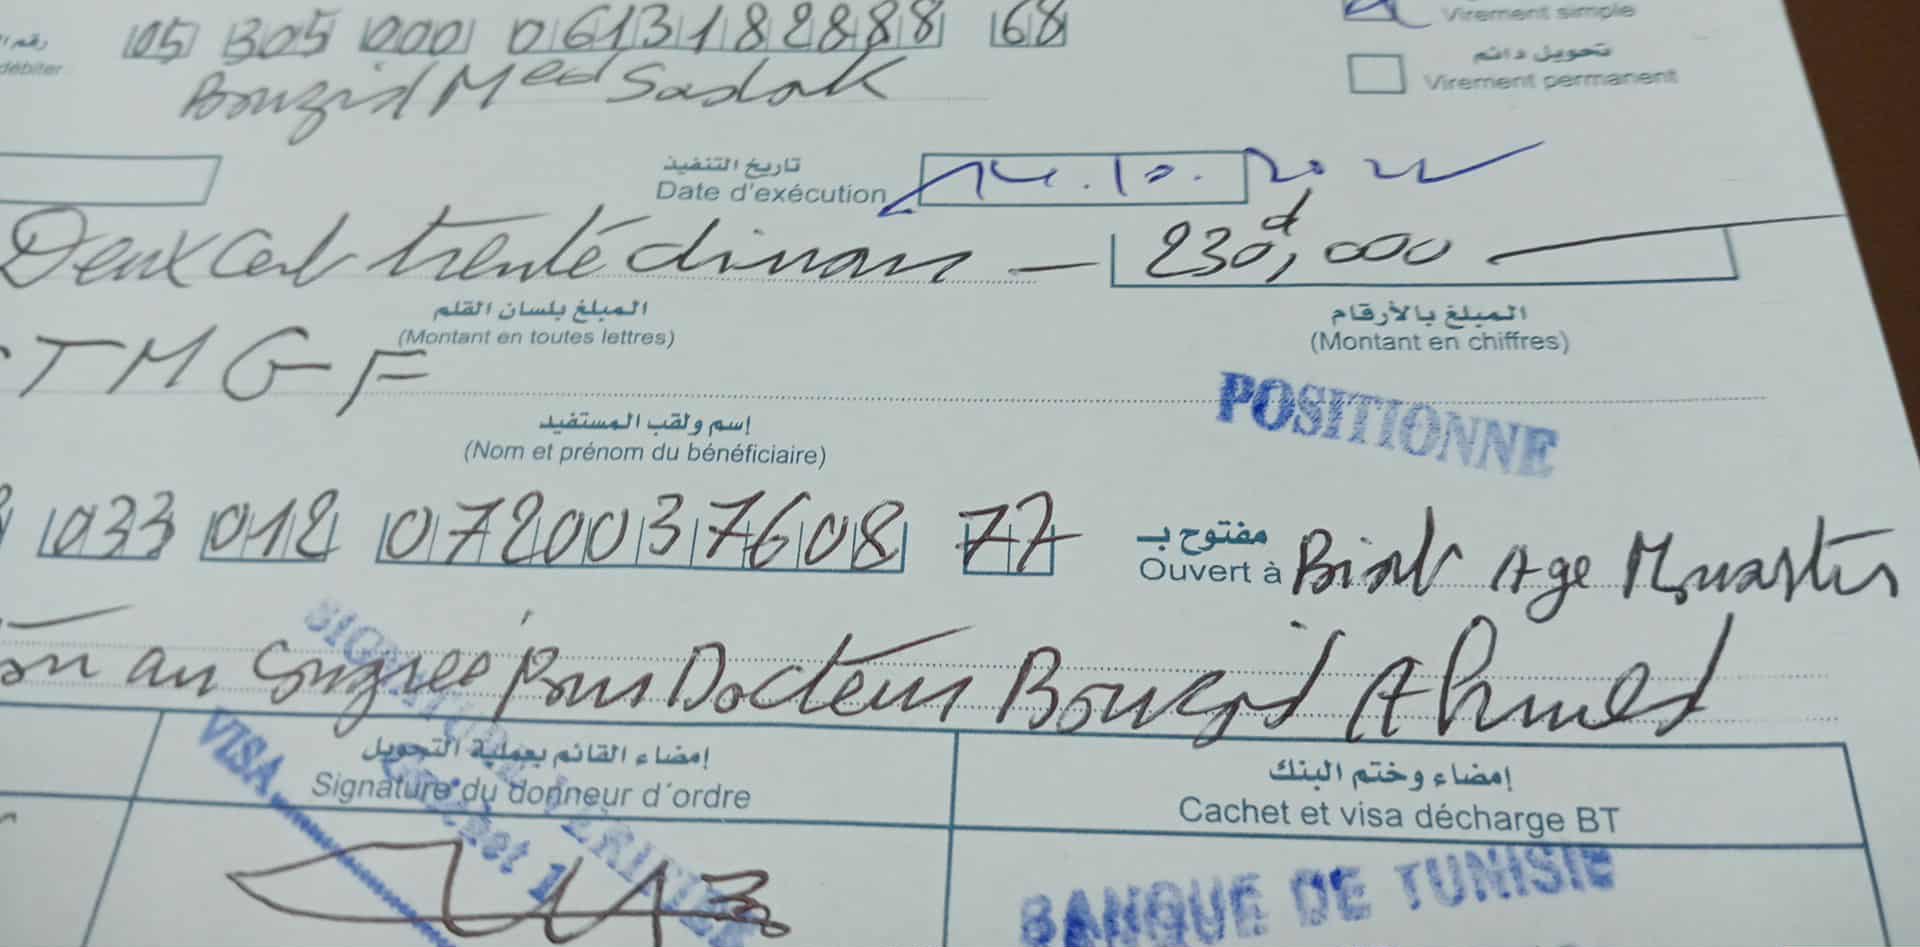 05 305 000 0613182888 68
Virement simple
débiter
Bouzid Med Sadok
تحويل دائم
Virement permanent
تاريخ التنفيذ
Date d'exécution
14.10.2022
Deux cent trente dinars — 230d,000
المبلغ بلسان القلم
(Montant en toutes lettres)
المبلغ بالأرقام
(Montant en chiffres)
STMGF
POSITIONNE
إسم ولقب المستفيد
(Nom et prénom du bénéficiaire)
033 012 0720037608 77
مفتوح بـ
Ouvert à Biat Age Monastir
au congrée pour Docteur Bouzid Ahmed
SIGNATURE VERIFIEE
VISA
إمضاء القائم بعملية التحويل
Signature du donneur d'ordre
إمضاء وختم البنك
Cachet et visa décharge BT
BANQUE DE TUNISIE